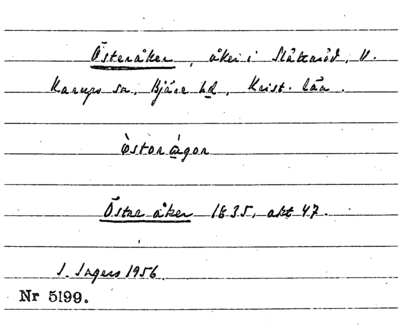 Österåker, åker i Slätteröd, V.
Karups sn, Bjäre hd, Krist. län.
östorågor
Öster åker 1835, akt 47.
S. Ingers 1956.
Nr 5199.